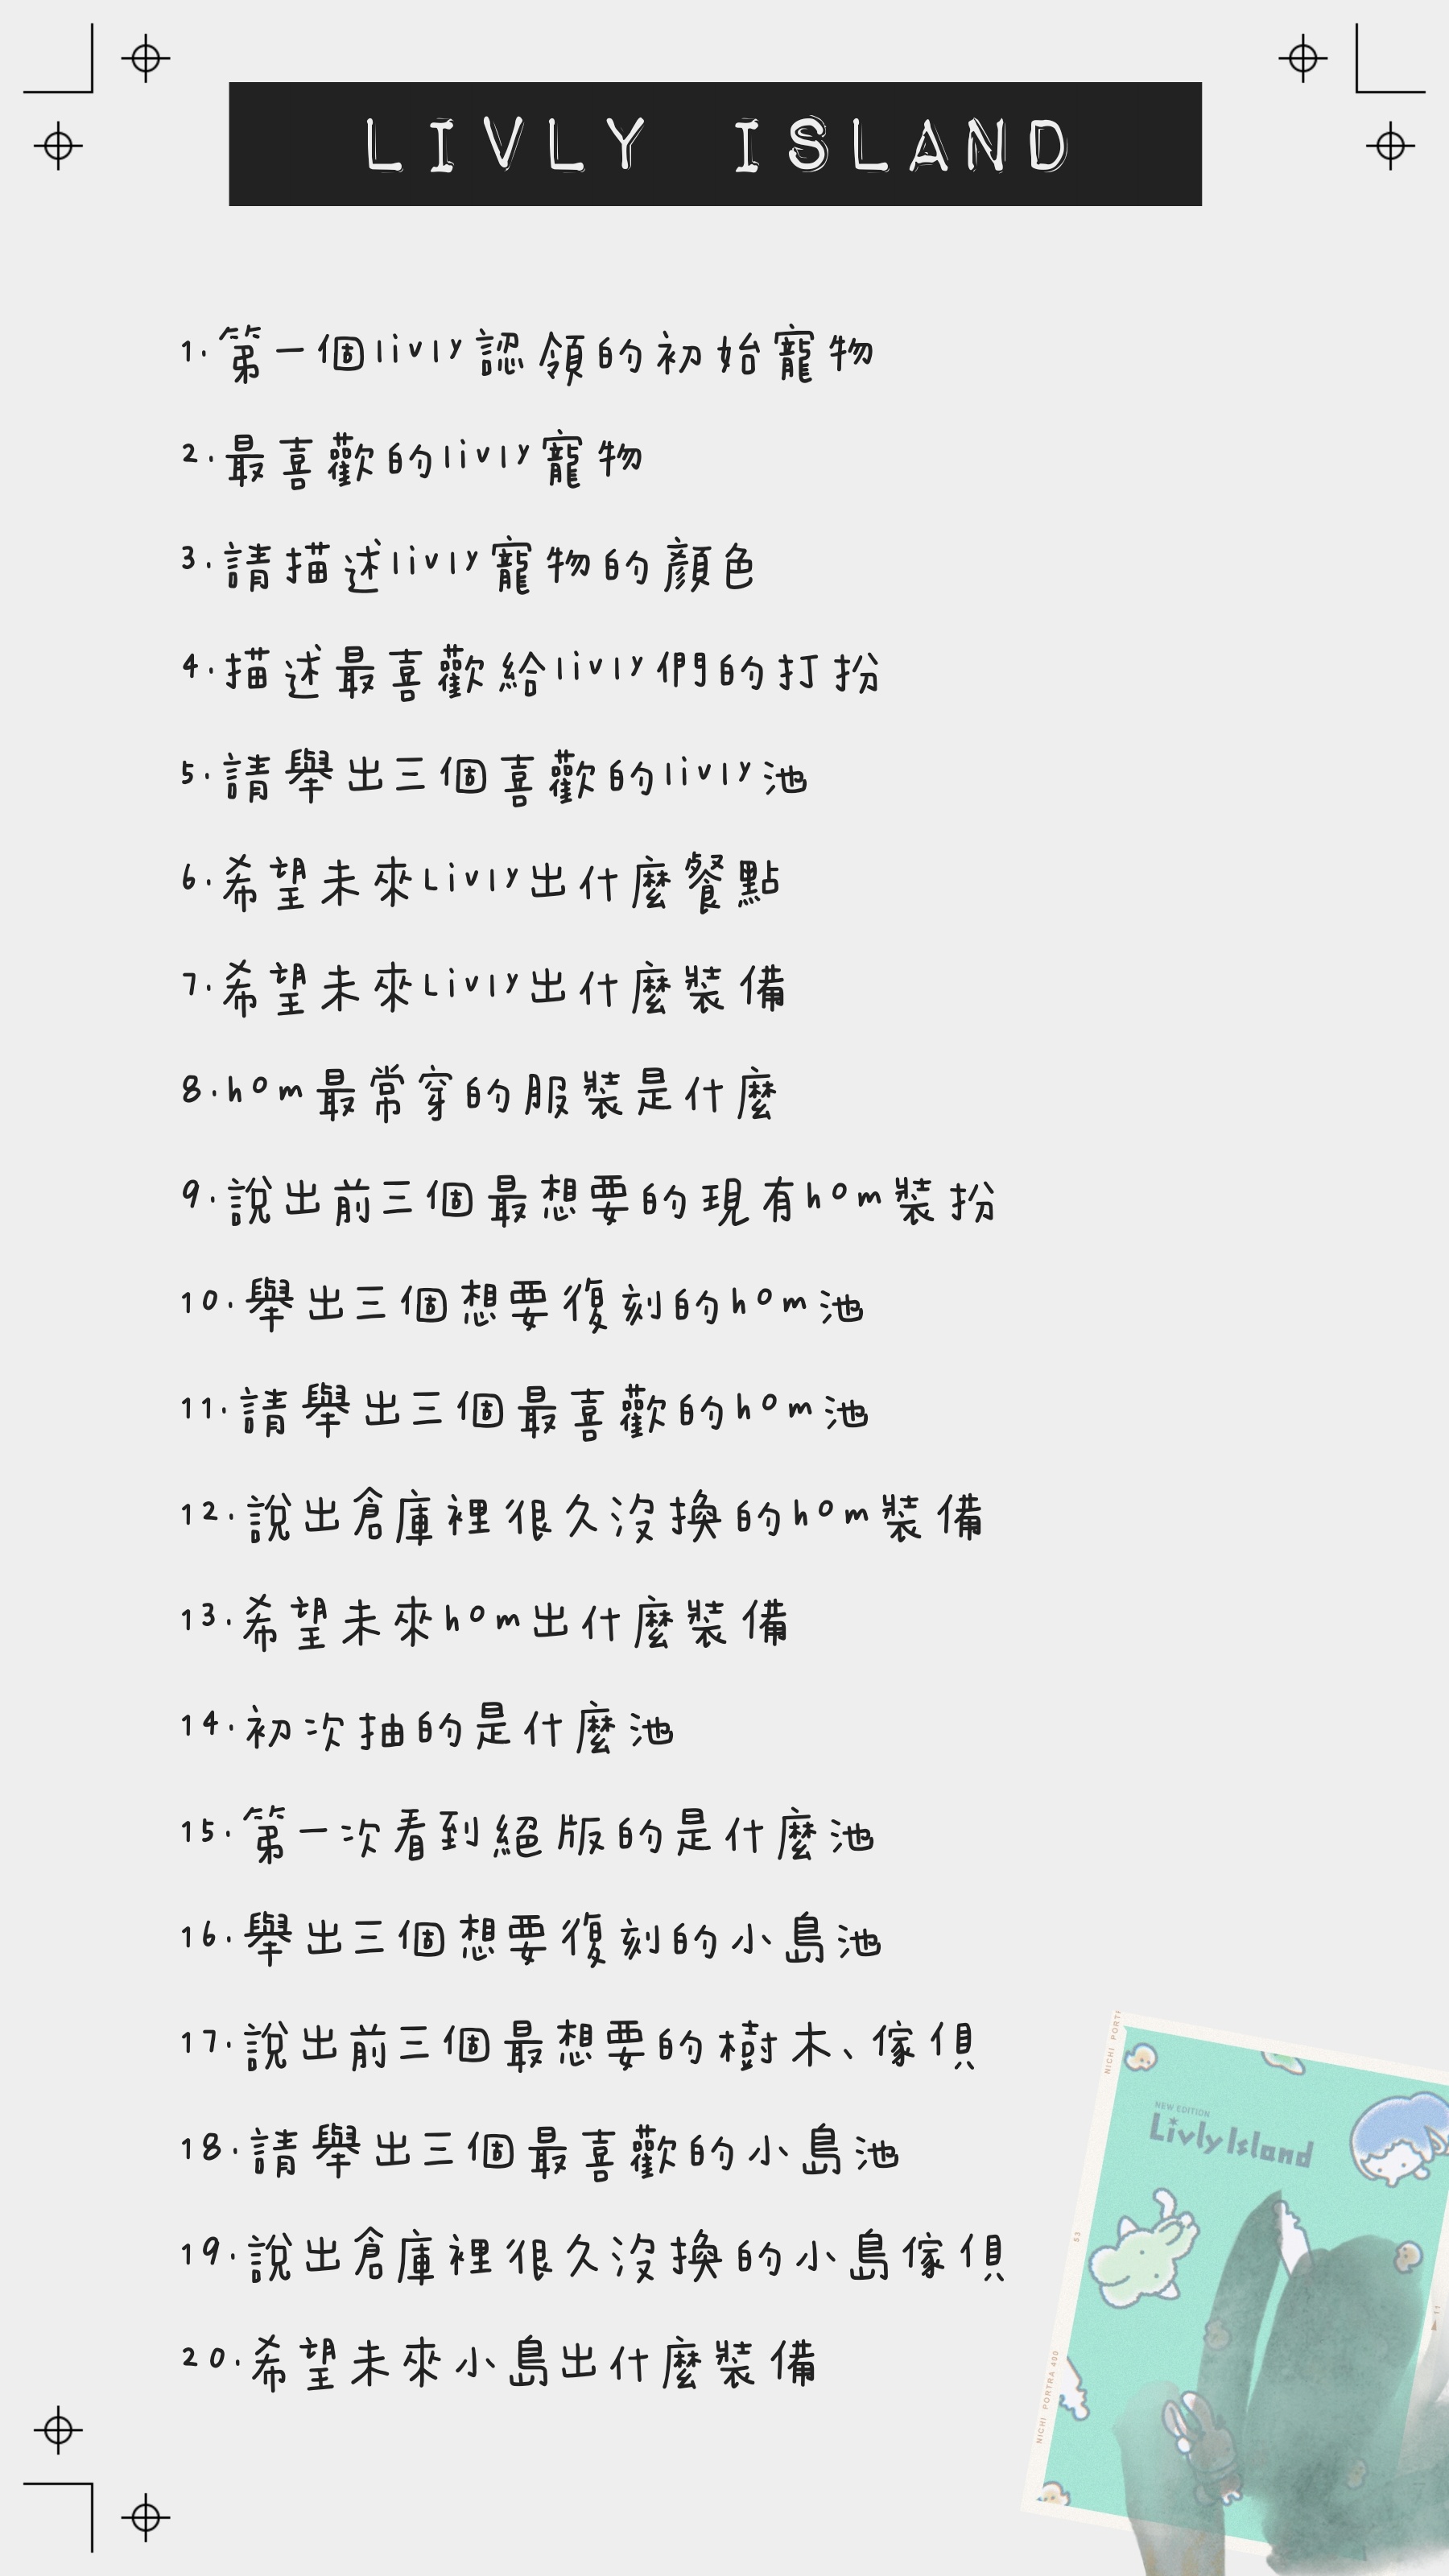 LIVLY ISLAND
1.第一個livly認領的初始寵物
2.最喜歡的livly寵物
3.請描述livly寵物的顏色
4.描述最喜歡給livly們的打扮
5.請舉出三個喜歡的livly池
6.希望未來Livly出什麼餐點
7.希望未來Livly出什麼裝備
8.hom最常穿的服裝是什麼
9.說出前三個最想要的現有hom裝扮
10.舉出三個想要復刻的hom池
11.請舉出三個最喜歡的hom池
12.說出倉庫裡很久沒換的hom裝備
13.希望未來hom出什麼裝備
14.初次抽的是什麼池
15.第一次看到絕版的是什麼池
16.舉出三個想要復刻的小島池
17.說出前三個最想要的樹木、傢俱
18.請舉出三個最喜歡的小島池
19.說出倉庫裡很久沒換的小島傢俱
20.希望未來小島出什麼裝備
NICHI PORT
NEW EDITION
Livly Island
53
11
NICHI PORTRA 400